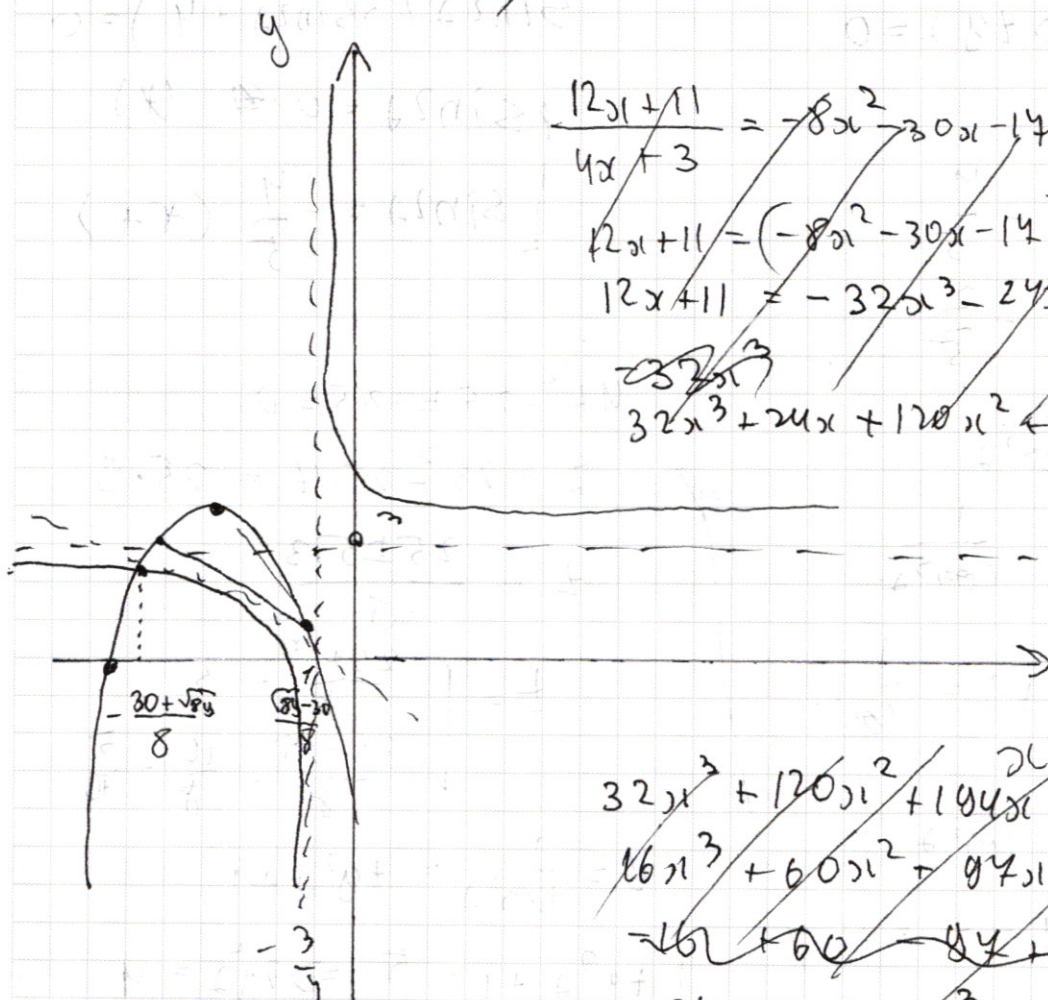 y
(12x+11)/(4x+3) = -8x² - 30x - 17
12x+11 = (-8x² - 30x - 17
12x+11 = -32x³ - 24x
-32x³
32x³ + 24x + 120x² +
3
- (30+√84)/8
(√84-30)/8
x
32x³ + 120x² + 194x
16x³ + 60x² + 97x
-16 + 60 - 97 +
- 3/4